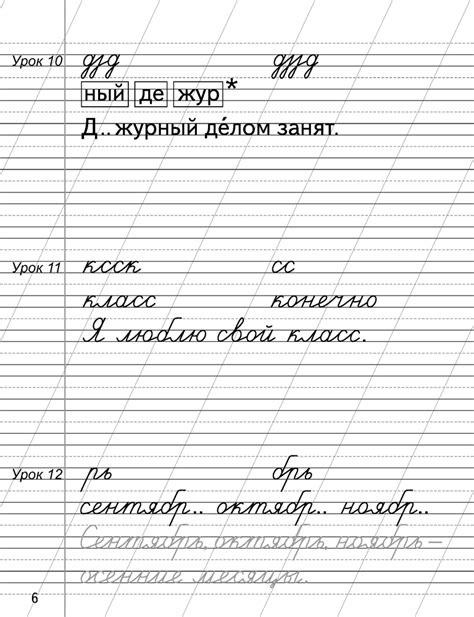 Урок 10 дзд дззд
ный де жур*
Д.. журный де́лом занят.
Урок 11 ксск сс
класс конечно
Я люблю свой класс.
Урок 12 рь брь
сентябр.. октябр.. ноябр..
Сентябрь, октябрь, ноябрь –
осенние месяцы.
6